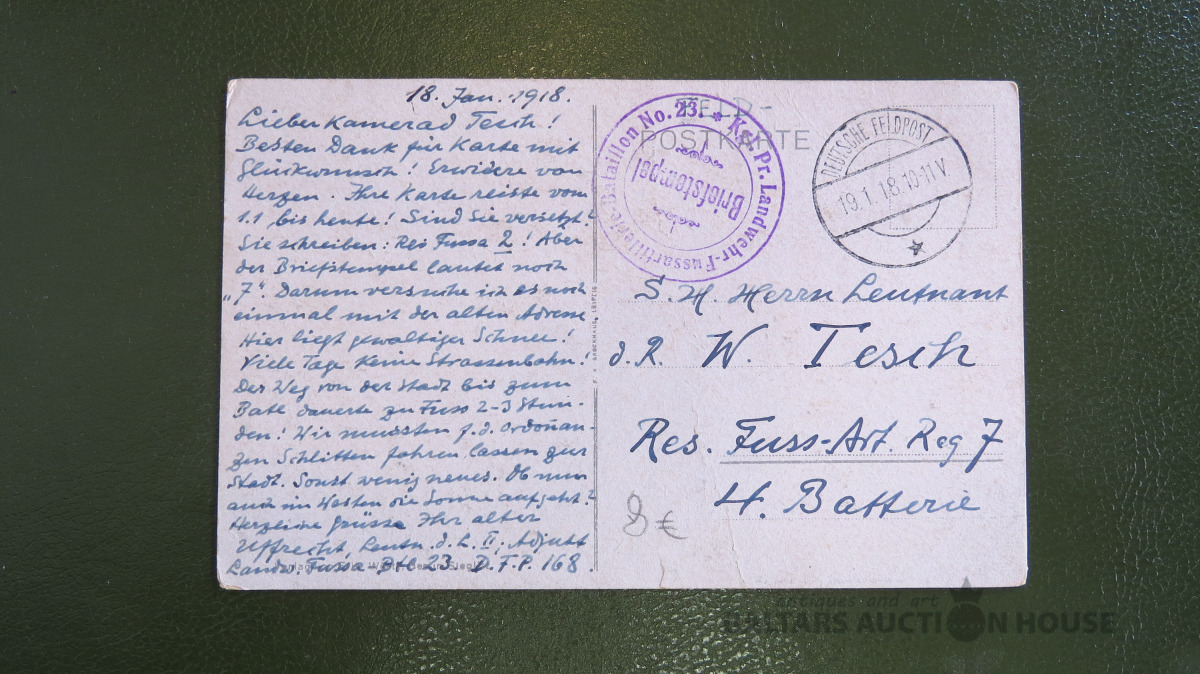 18. Jan. 1918.
Lieber Kamerad Tesch!
Besten Dank für Karte mit
Glückwunsch! Erwidere von
Herzen. Ihre Karte reiste vom
1.1 bis heute! Sind Sie versetzt?
Sie schreiben: Res Fussa 2! Aber
der Briefstempel lautet noch
„7“. Darum versuche ich es noch
einmal mit der alten Adresse
Hier liegt gewaltiger Schnee!
Viele Tage keine Strassenbahn!
Der Weg von der Stadt bis zum
Batl dauerte zu Fuss 2-3 Stun-
den! Wir mussten f. d. Ordonan-
zen Schlitten fahren lassen zur
Stadt. Sonst wenig neues. Ob nun
auch im Westen die Sonne aufgeht?
Herzliche Grüsse Ihr alter
Uffrecht, Leutn. d. L. II, Adjutt
Landw. Fussa Btl 23 D.F.P. 168.
FELD-
POSTKARTE
Kgl. Pr. Landwehr-Fussartillerie-Bataillon No. 23. *
Briefstempel
DEUTSCHE FELDPOST
19.1.18.10-11V
F. A. BROCKHAUS, LEIPZIG
S. H. Herrn Leutnant
d. R. W. Tesch
Res. Fuss-Art. Reg 7
4. Batterie
8 €
antiques and art
BALTARS AUCTION HOUSE